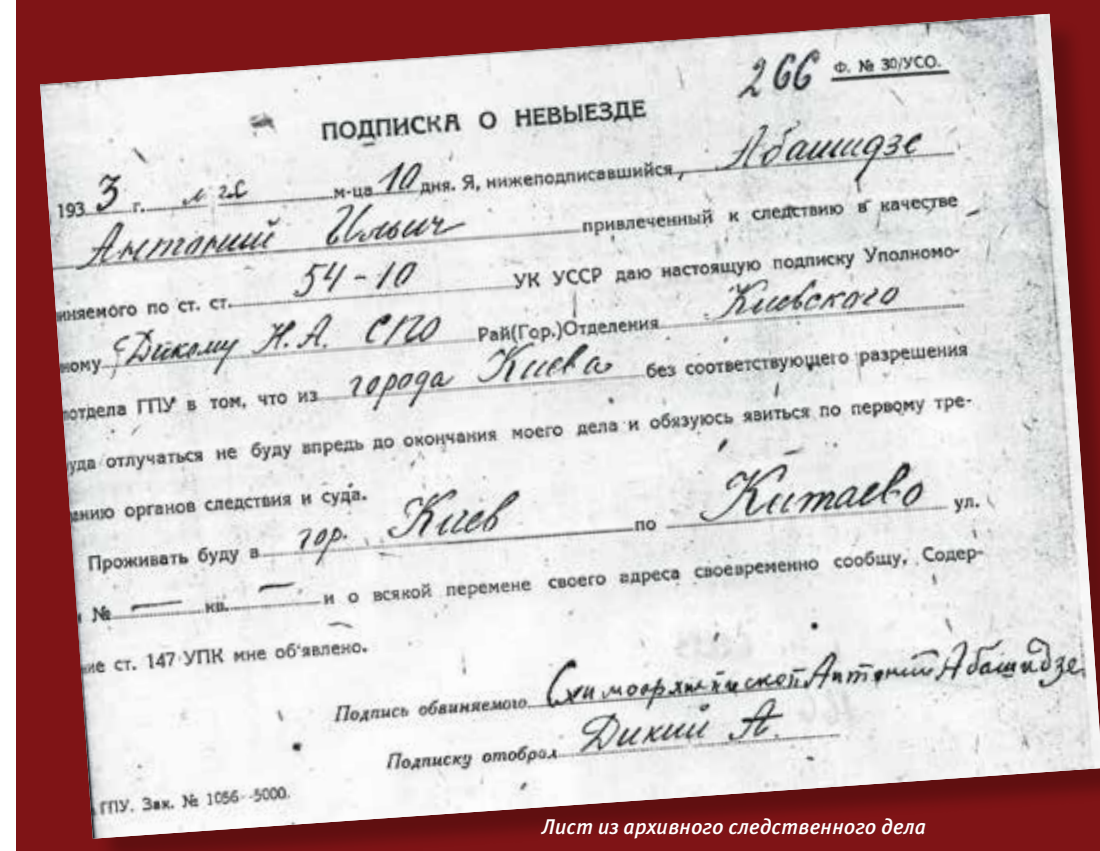 266 Ф. № 30/УСО.
ПОДПИСКА О НЕВЫЕЗДЕ
193 3 г. м-ца 10 дня. Я, нижеподписавшийся, Абашидзе
Антоний Ильич привлеченный к следствию в качестве
иняемого по ст. ст. 54-10 УК УССР даю настоящую подписку Уполномо-
ному Дикому Н.А. СПО Рай(Гор.)Отделения Киевского
отдела ГПУ в том, что из города Киева без соответствующего разрешения
уда отлучаться не буду впредь до окончания моего дела и обязуюсь явиться по первому тре-
нию органов следствия и суда.
Проживать буду в гор. Киев по Китаево ул.
№ — кв. — и о всякой перемене своего адреса своевременно сообщу, Содер-
ие ст. 147 УПК мне об'явлено.
Подпись обвиняемого Схимоархиепископ Антоний Абашидзе
Подписку отобрал Дикий А.
ГПУ. Зак. № 1056--5000.
Лист из архивного следственного дела